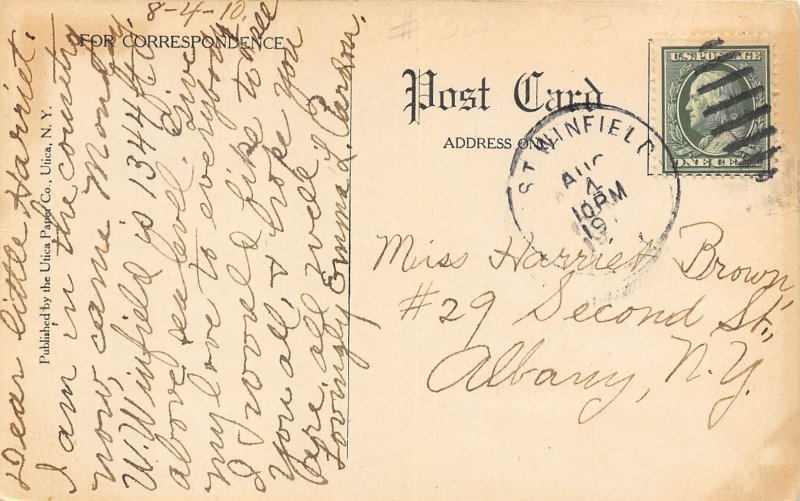 8-4-10.
Dear little Harriet:
I am in the country
now, came Monday,
W. Winfield is 1344 ft.
above sea level. Give
my love to everybody
I would like to see
you all, & hope you
are all well.
Lovingly Emma L. Carson.
FOR CORRESPONDENCE
Published by the Utica Paper Co., Utica, N. Y.
Post Card
ADDRESS ONLY
ST WINFIELD
AUG
4
10 PM
19
U.S. POSTAGE
ONE CENT
Miss Harriet Brown,
#29 Second St.,
Albany, N.Y.